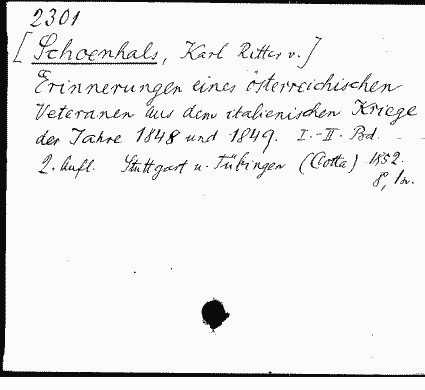 2301
[Schoenhals, Karl Ritter v.]
Erinnerungen eines österreichischen
Veteranen aus dem italienischen Kriege
der Jahre 1848 und 1849. I.-II. Bd.
2. Aufl. Stuttgart u. Tübingen (Cotta) 1852.
8°, 1 Bv.